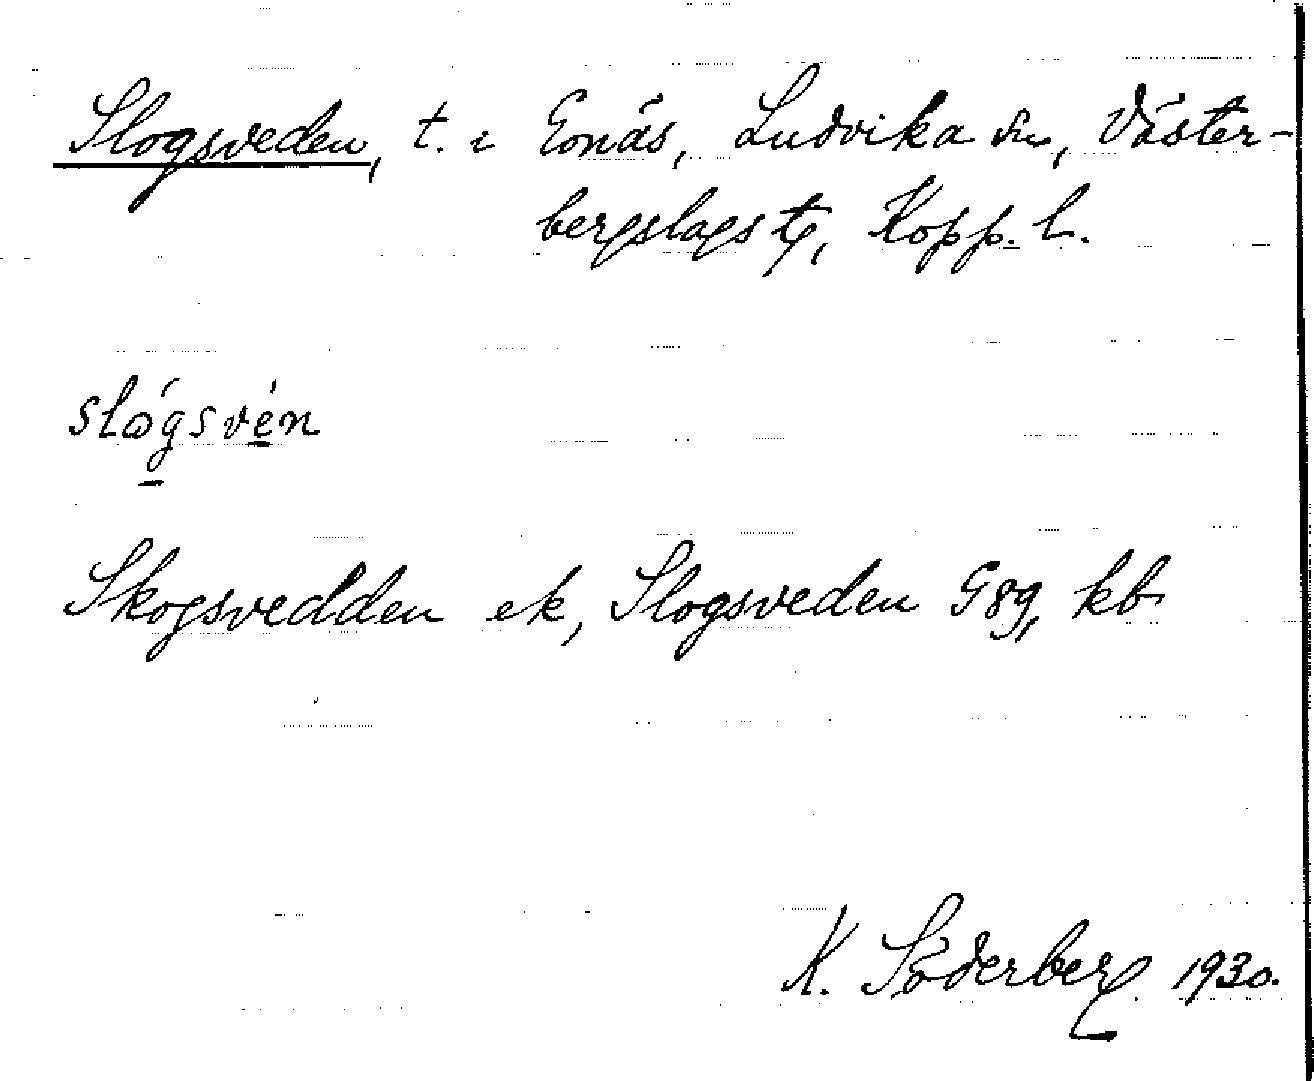 Slogsveden, t. i Gonäs, Ludvika sn, Väster-
bergslags tg, Kopp. l.
slógsvén
Skogsvedden ek, Slogsveden G89, kb
K. Söderberg 1930.